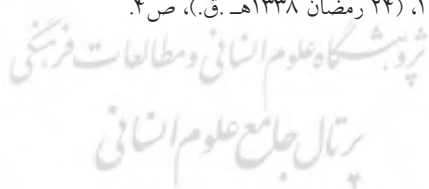 ۱، (۲۴ رمضان ۱۳۳۸هـ .ق.)، ص۴.
پژوهشگاه علوم انسانی ومطالعات فرہنگی
پرتال جامع علوم انسانی